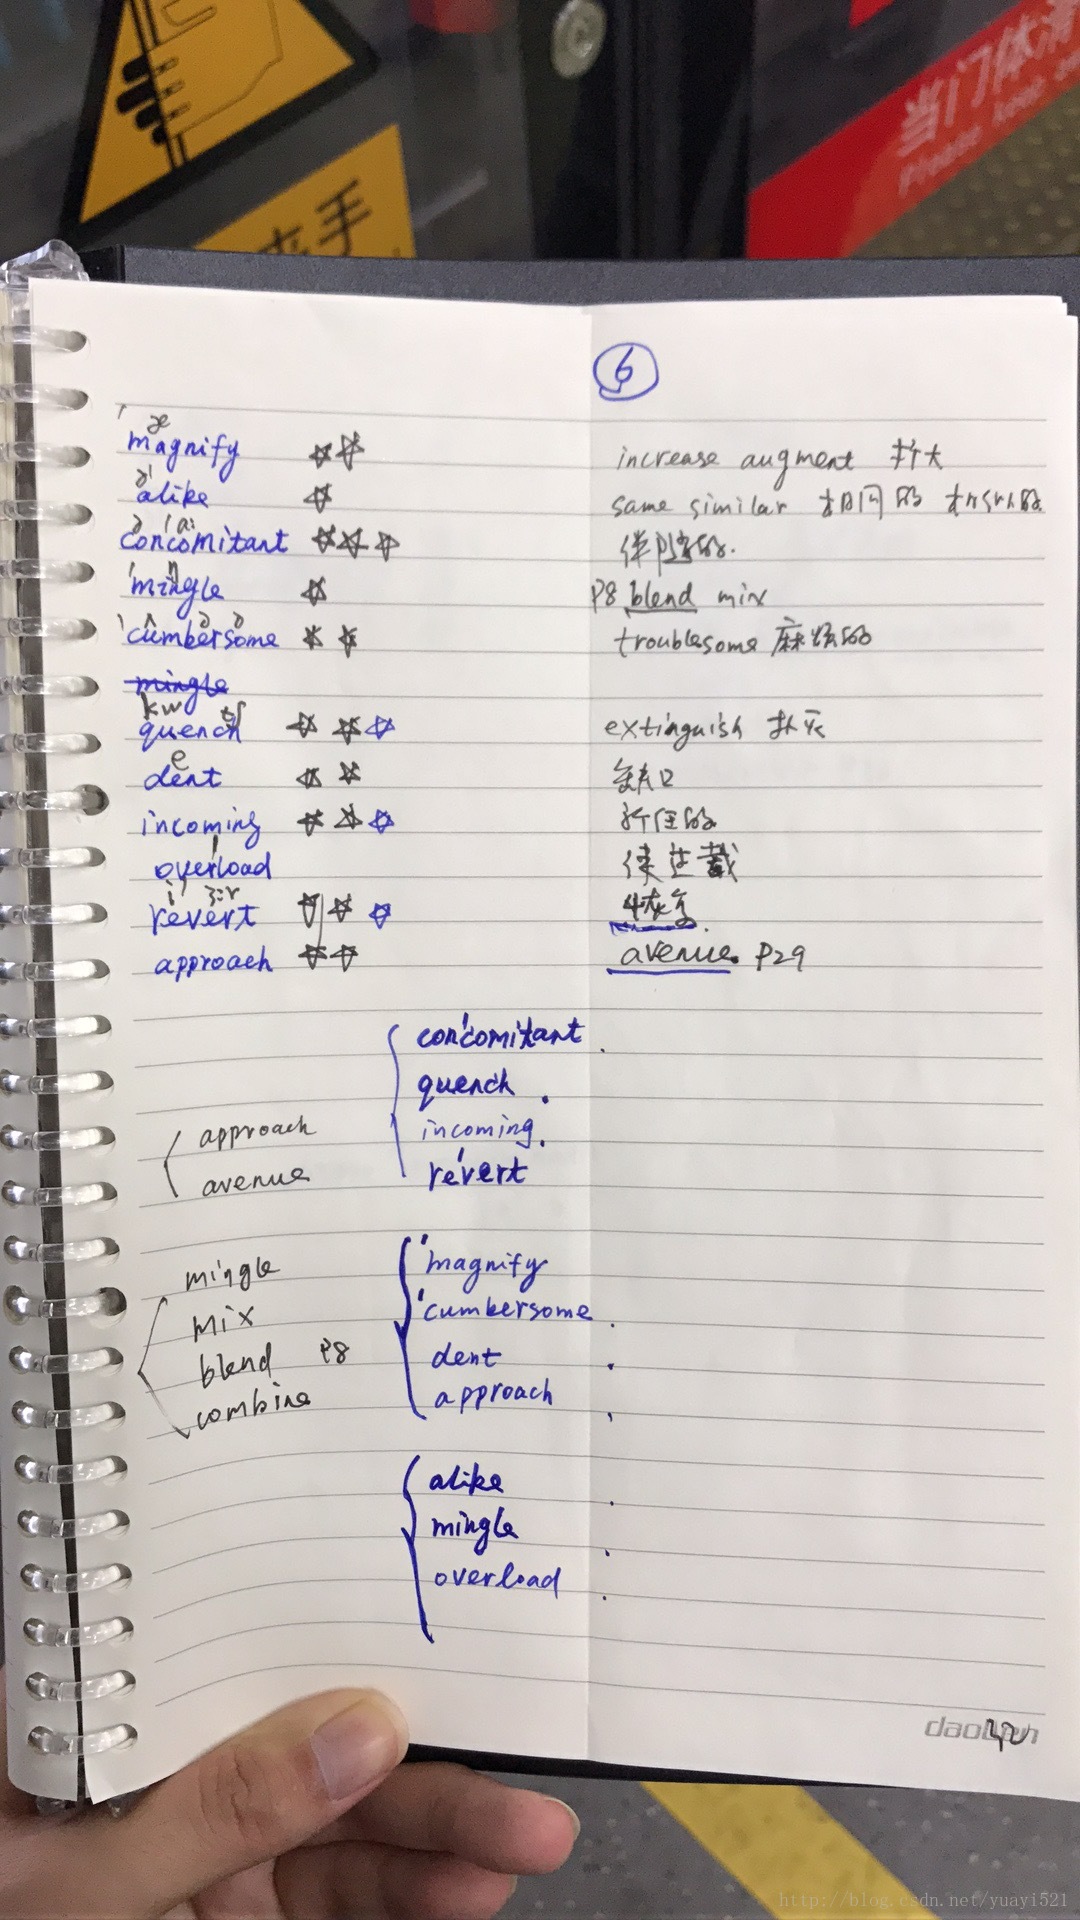 夹手
当门体滑
Please keep
6
magnify increase augment 扩大
alike same similar 相同的 相似的
concomitant 伴随的.
mingle P8 blend mix
cumbersome troublesome 麻烦的
mingle
quench extinguish 扑灭
dent 缺口
incoming 新任的
overload 使过载
revert 恢复.
approach avenue. P29
concomitant
quench
approach incoming
avenue revert
mingle magnify
mix cumbersome
blend P8 dent
combine approach
alike
mingle
overload
daolen
http://blog.csdn.net/yuayi521